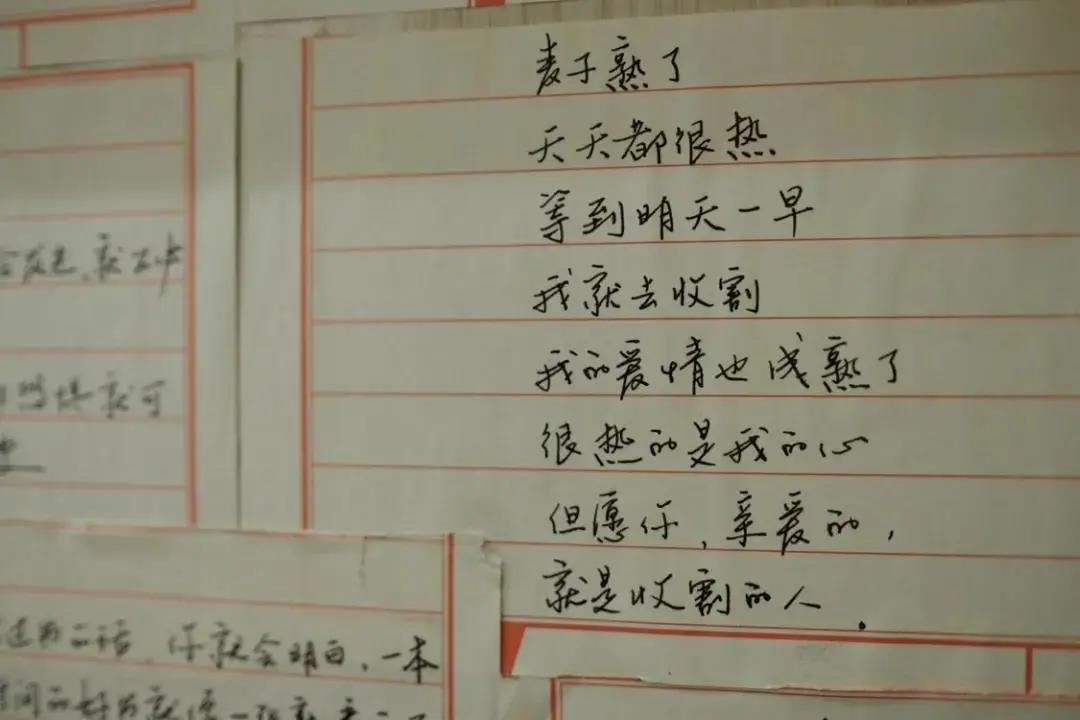 麦子熟了
天天都很热
等到明天一早
我就去收割
我的爱情也成熟了
很热的是我的心
但愿你、亲爱的,
就是收割的人。
就可
话、你就会明白、一本